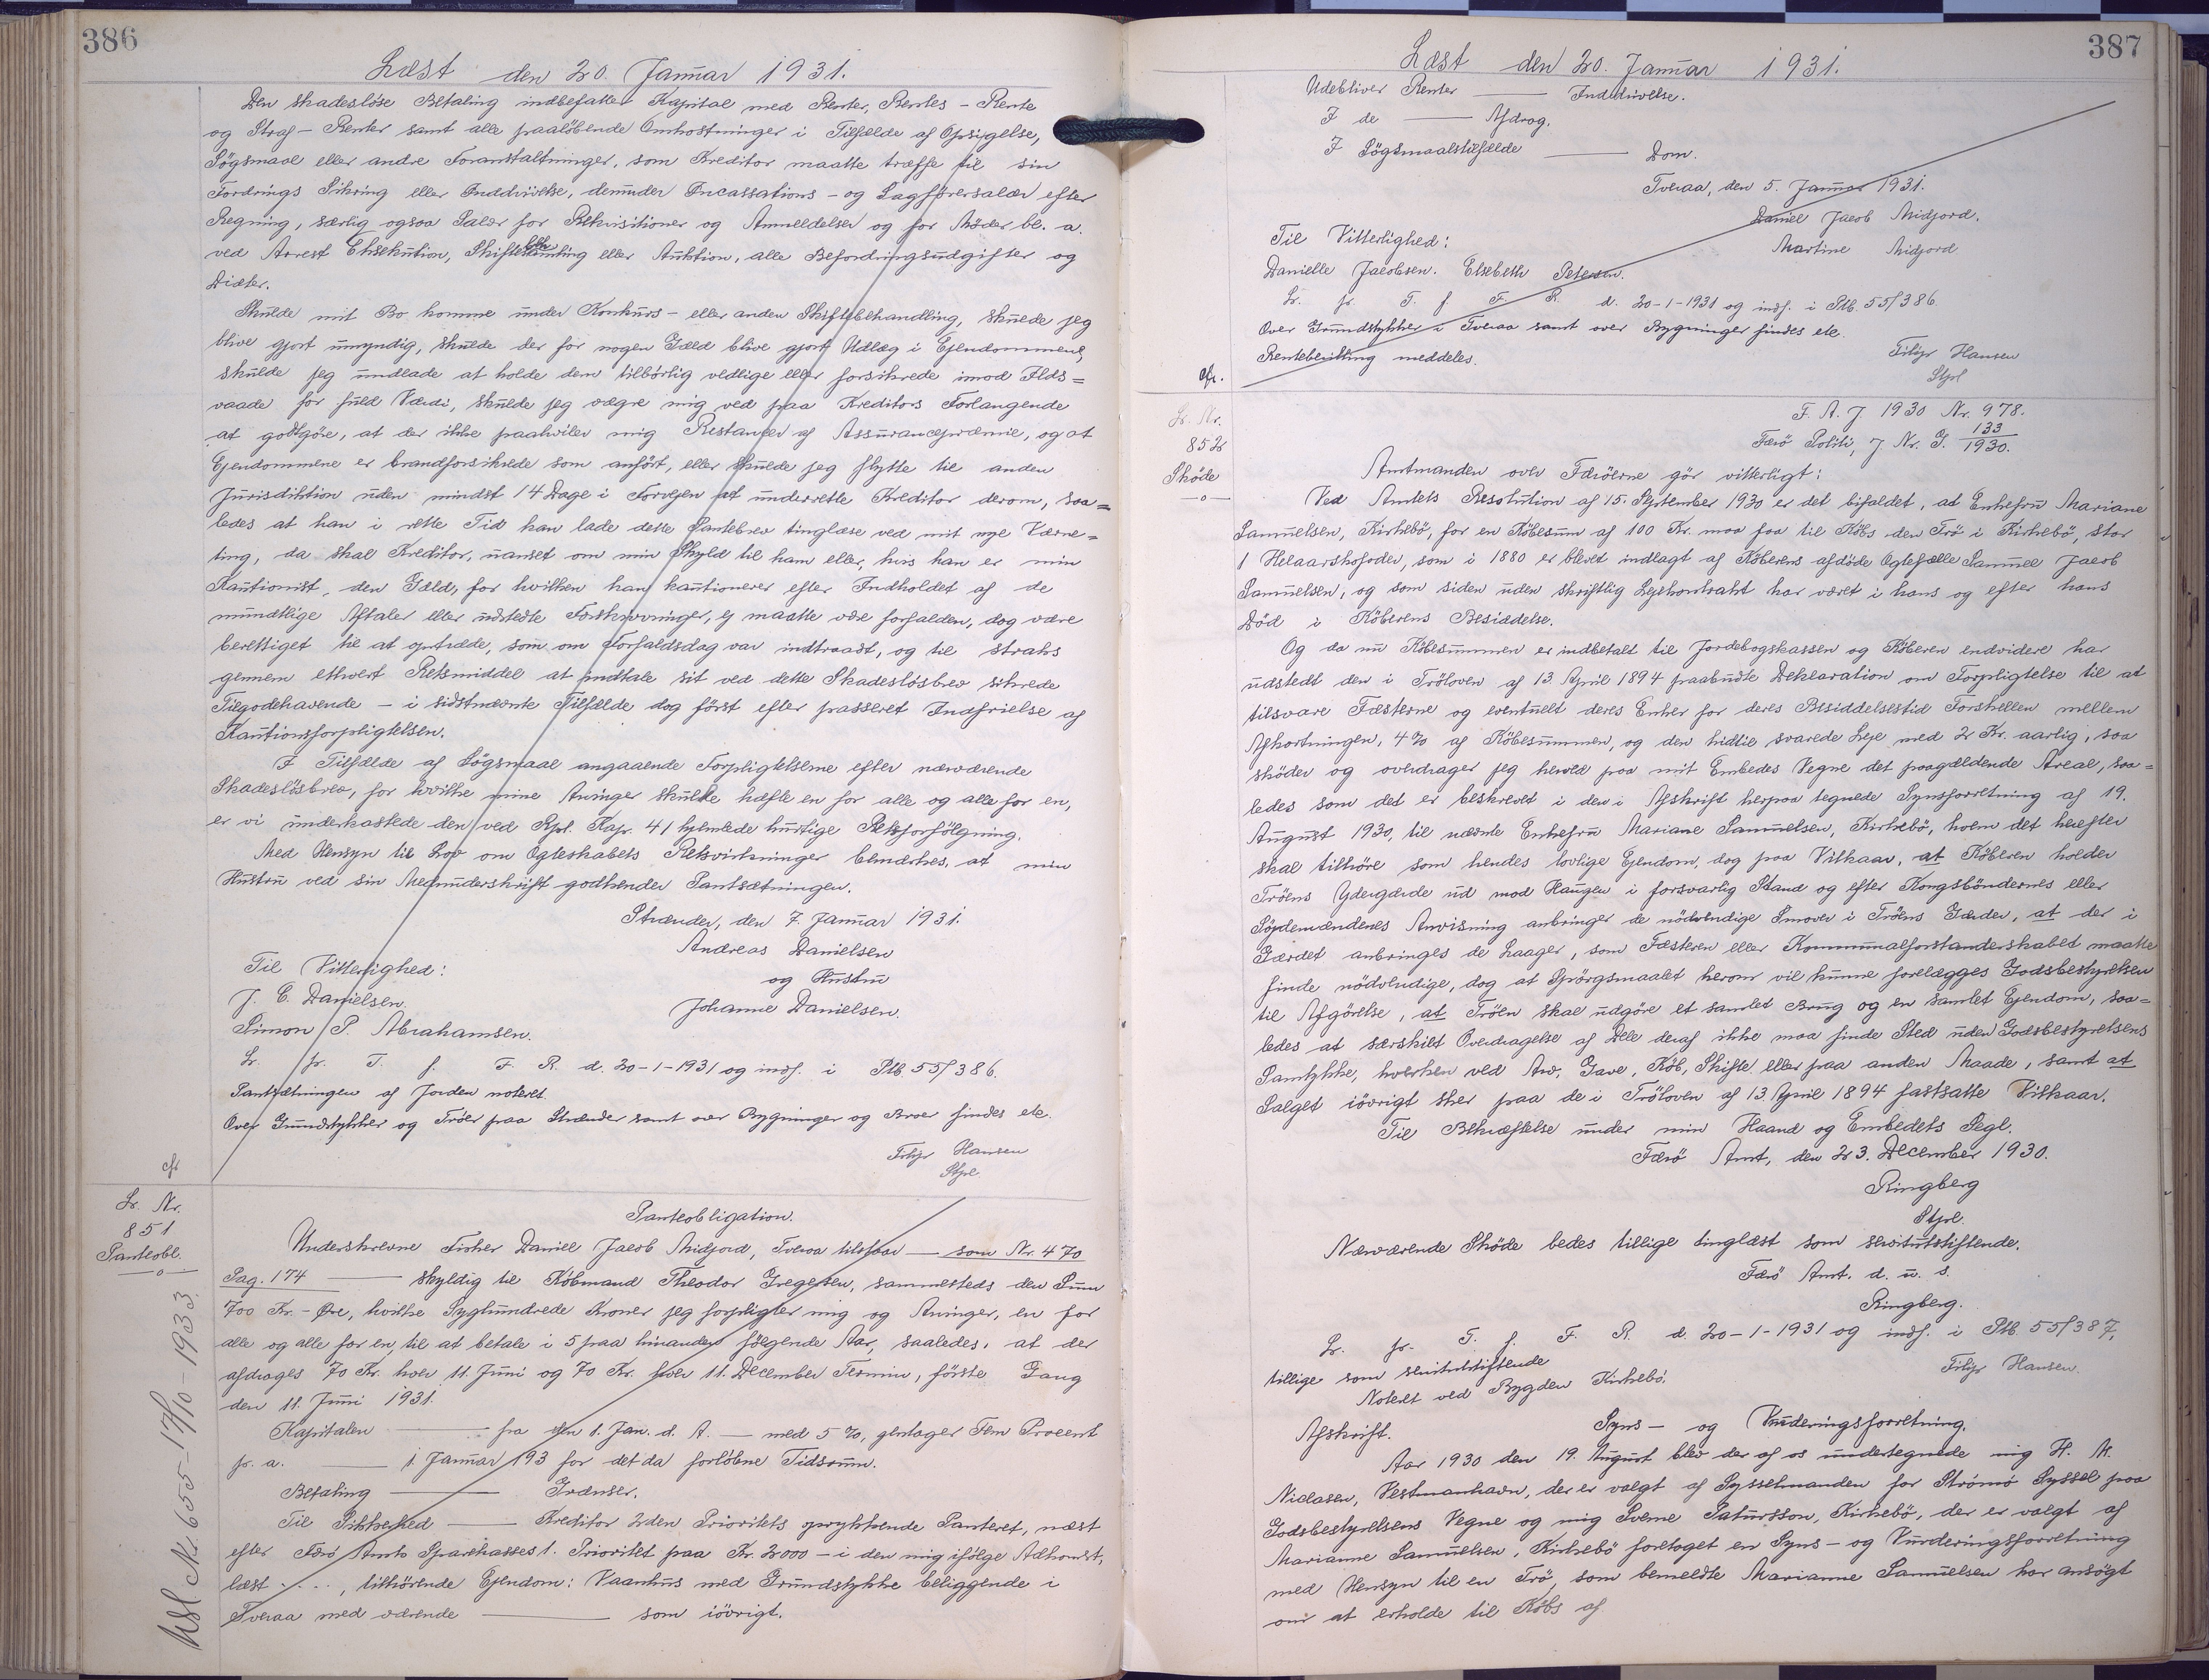 386
Læst den 20. Januar 1931.
Den skadesløse Betaling indbefatter Kapital med Renter, Rentes-Rente
og Straf-Renter samt alle paaløbende Omkostninger i Tilfælde af Opsigelse,
Søgsmaal eller andre Foranstaltninger, som Kreditor maatte træffe til sin
Fordrings Sikring eller Inddrivelse, derunder Incassations- og Sagførersalær efter
Regning, særlig ogsaa Salær for Rekvisitioner og Anmeldelser og for Møder bl. a.
ved Arrest Eksekution, Skiftesamling eller Auktion, alle Befordringsudgifter og
Diæter.
Skulde mit Bo komme under Konkurs- eller anden Skiftebehandling, skulde jeg
blive gjort umyndig, skulde der for nogen Gæld blive gjort Udlæg i Ejendommene,
skulde jeg undlade at holde dem tilbørlig vedlige eller forsikrede imod Ilds=
vaade for fuld Værdi, skulde jeg vægre mig ved paa Kreditors Forlangende
at godtgøre, at der ikke paahviler mig Restancer af Assurancepræmie, og at
Ejendommene er brandforsikrede som anført, eller skulde jeg flytte til anden
Jurisdiktion uden mindst 14 Dage i Forvejen at underrette Kreditor derom, saa=
ledes at han i rette Tid kan lade dette Pantebrev tinglæse ved mit nye Værne=
ting, da skal Kreditor, uanset om min Skyld til ham eller, hvis han er min
Kautionist, den Gæld, for hvilken han kautionerer efter Indholdet af de
mundtlige Aftaler eller udstedte Forskrivninger, ej maatte være forfalden, dog være
berettiget til at optræde, som om Forfaldsdag var indtraadt, og til straks
gennem ethvert Retsmiddel at indtale sit ved dette Skadesløsbrev sikrede
Tilgodehavende – i sidstnævnte Tilfælde dog først efter passeret Indfrielse af
Kautionsforpligtelsen.
I Tilfælde af Søgsmaal angaaende Forpligtelserne efter nærværende
Skadesløsbrev, for hvilke mine Arvinger skulde hæfte en for alle og alle for en,
er vi underkastede den ved Rpl. Kap. 41 hjemlede hurtige Retsforfølgning.
Med Hensyn til Lov om Ægteskabets Retsvirkninger bemærkes, at min
Hustru ved sin Medunderskrift godkender Pantsætningen.
Strænder, den 7. Januar 1931.
Andreas Danielsen
og Hustru
Johanne Danielsen.
Til Vitterlighed:
J. C. Danielsen.
Simon P. Abrahamsen.
Lr. fr. T. f. F. R. d. 20-1-1931 og indf. i Ptb. 55/386.
Pantsætningen af Jorden noteret.
Over Grundstykker og Trøer paa Strænder samt over Bygninger og Broer findes etc.
Filip Hansen
Stpl.
cfr
Lr. Nr.
851
Panteobl.
Panteobligation.
Underskrevne Fisker Daniel Jacob Midjord, Tveraa tilstaar — som Nr. 470
Pag. 174 — skyldig til Købmand Theodor Gregersen, sammesteds den Sum
700 Kr. - Øre, hvilke Syvhundrede Kroner jeg forpligter mig og Arvinger, en for
alle og alle for en, til at betale i 5 paa hinanden følgende Aar, saaledes, at der
afdrages 70 Kr. hver 11. Juni og 70 Kr. hver 11. December Termin, første Gang
den 11. Juni 1931.
Kapitalen — fra den 1. Jan. d. A. — med 5 %, gentager Fem Procent
pr. a. — 1. Januar 193 for det da forløbne Tidsrum.
Betaling — Grænser.
Til Sikkerhed — Kreditor 2den Prioritets oprykkende Panteret, næst
efter Færø Amts Sparekasses 1. Prioritet paa Kr. 2000 – i den mig ifølge Adkomst,
læst ...., tilhørende Ejendom: Vaanhus med Grundstykke beliggende i
Tveraa med værende — som iøvrigt.
Udsl. Nr. 655 – 17/10 – 1933.
387
Læst den 20. Januar 1931.
Udebliver Renter — Inddrivelse.
I de — Afdrag.
I Søgsmaalstilfælde — Dom.
Tveraa, den 5. Januar 1931.
Daniel Jacob Midjord.
Martine Midjord
Til Vitterlighed:
Danielle Jacobsen. Elsebeth Petersen.
Lr. fr. T. f. F. R. d. 20-1-1931 og indf. i Ptb. 55/386
Over Grundstykker i Tveraa samt over Bygninger findes etc.
Rentebevilling meddeles.
Filip Hansen
Stpl
cfr.
Lr. Nr.
852
Skøde
F. A. J 1930 Nr. 978.
Færø Politi, J Nr. G. 133/1930.
Amtmanden over Færøerne gør vitterligt:
Ved Amtets Resolution af 15. September 1930 er det bifaldet, at Enkefru Mariane
Samuelsen, Kirkebø, for en Købesum af 100 Kr. maa faa til Købs den Trø i Kirkebø, stor
1 Helaarskofoder, som i 1880 er blevet indlagt af Køberens afdøde Ægtefælle Samuel Jacob
Samuelsen, og som siden uden skriftlig Lejekontrakt har været i hans og efter hans
Død i Køberens Besiddelse.
Og da nu Købesummen er indbetalt til Jordebogskassen og Køberen endvidere har
udstedt den i Trøloven af 13. April 1894 paabudte Deklaration om Forpligtelse til at
tilsvare Fæsterne og eventuelt deres Enker for deres Besiddelsestid Forskellen mellem
Afkortningen, 4 % af Købesummen, og den hidtil svarede Leje med 2 Kr. aarlig, saa
skøder og overdrager jeg herved paa mit Embedes Vegne det paagældende Areal, saa=
ledes som det er beskrevet i den i Afskrift herpaa tegnede Synsforretning af 19.
August 1930, til nævnte Enkefru Mariane Samuelsen, Kirkebø, hvem det herefter
skal tilhøre som hendes lovlige Ejendom, dog paa Vilkaar, at Køberen holder
Trøens Ydergærde ud mod Haugen i forsvarlig Stand og efter Kongsbøndernes eller
Sopdemændenes Anvisning anbringer de nødvendige Smover i Trøens Gærder, at der i
Gærdet anbringes de Laager, som Fæsteren eller Kommunalforstanderskabet maatte
finde nødvendige, dog at Spørgsmaalet herom vil kunne forelægges Godsbestyrelsen
til Afgørelse, at Trøen skal udgøre et samlet Brug og en samlet Ejendom, saa=
ledes at særskilt Overdragelse af Dele deraf ikke maa finde Sted uden Godsbestyrelsens
Samtykke, hverken ved Arv, Gave, Køb, Skifte eller paa anden Maade, samt at
Salget iøvrigt sker paa de i Trøloven af 13. April 1894 fastsatte Vilkaar.
Til Bekræftelse under min Haand og Embedets Segl.
Færø Amt, den 23. December 1930.
Ringberg
Stpl.
Nærværende Skøde bedes tillige tinglæst som servitutstiftende.
Færø Amt. d. u. s.
Ringberg.
Lr. fr. T. f. F. R. d. 20-1-1931 og indf. i Ptb. 55/387,
tillige som servitutstiftende
Noteret ved Bygden Kirkebø.
Filip Hansen.
Afskrift.
Syns- og Vurderingsforretning.
Aar 1930 den 19. August blev der af os undertegnede mig H. M.
Niclasen, Vestmanhavn, der er valgt af Sysselmanden for Strømø Syssel paa
Godsbestyrelsens Vegne og mig Sverre Patursson, Kirkebø, der er valgt af
Marianne Samuelsen, Kirkebø foretaget en Syns- og Vurderingsforretning
med Hensyn til en Trø, som bemeldte Marianne Samuelsen har ansøgt
om at erholde til Købs af